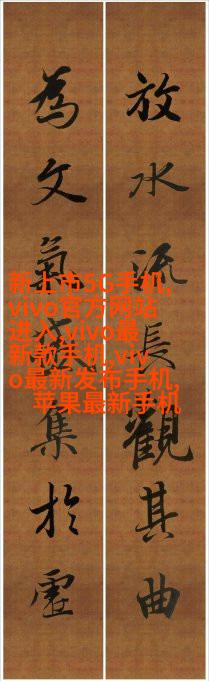 放水流長觀其曲
為文氣集於虛
新上市5G手机,
vivo官方网站
进入,vivo最
新款手机,viv
o最新发布手机,
苹果最新手机